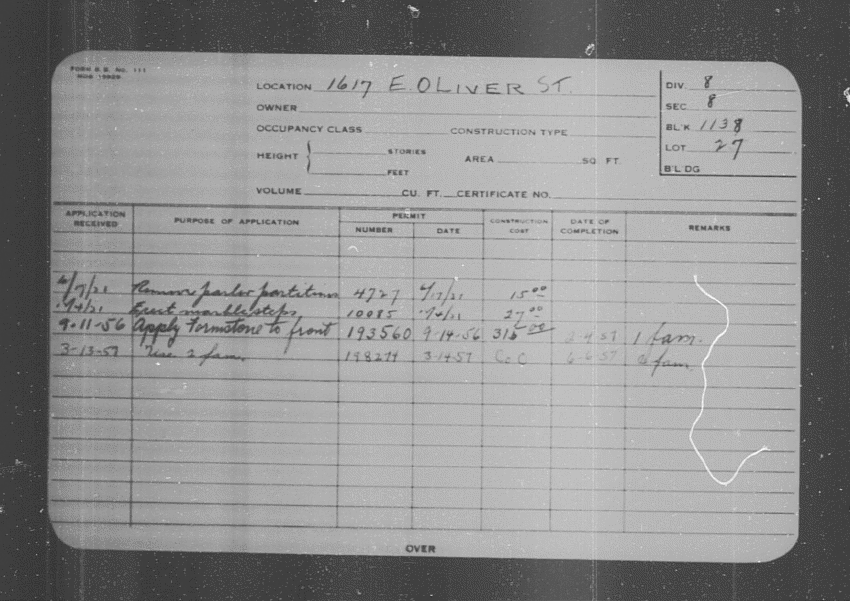 FORM B.B. No. 111
LOCATION 1617 E. OLIVER ST. DIV 8
OWNER SEC 8
OCCUPANCY CLASS CONSTRUCTION TYPE BL'K 1138
HEIGHT STORIES AREA SQ FT. LOT 27
FEET B'L'DG
VOLUME CU. FT. CERTIFICATE NO.
APPLICATION RECEIVED PURPOSE OF APPLICATION PERMIT NUMBER DATE CONSTRUCTION COST DATE OF COMPLETION REMARKS
4/7/21 Remove parlor partitions 4727 15 00
Erect marble steps 10085 27 00
9-11-56 Apply Formstone to front 193560 9-14-56 316 00 2-4-57 1 fam.
3-13-57 Use 2 fam. 3-14-57 C.C 6-6-57 fam.
OVER